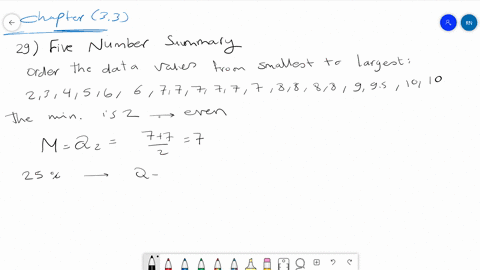 Chapter (3.3)
29) Five Number Summary
Order the data values from smallest to largest:
2,3,4,5,6, 6, 7,7,7,7,7,7, 8,8,8,8, 9, 9.5, 10, 10
The min. is 2 → even
M = Q2 = 7+7/2 = 7
25% → Q-
RN